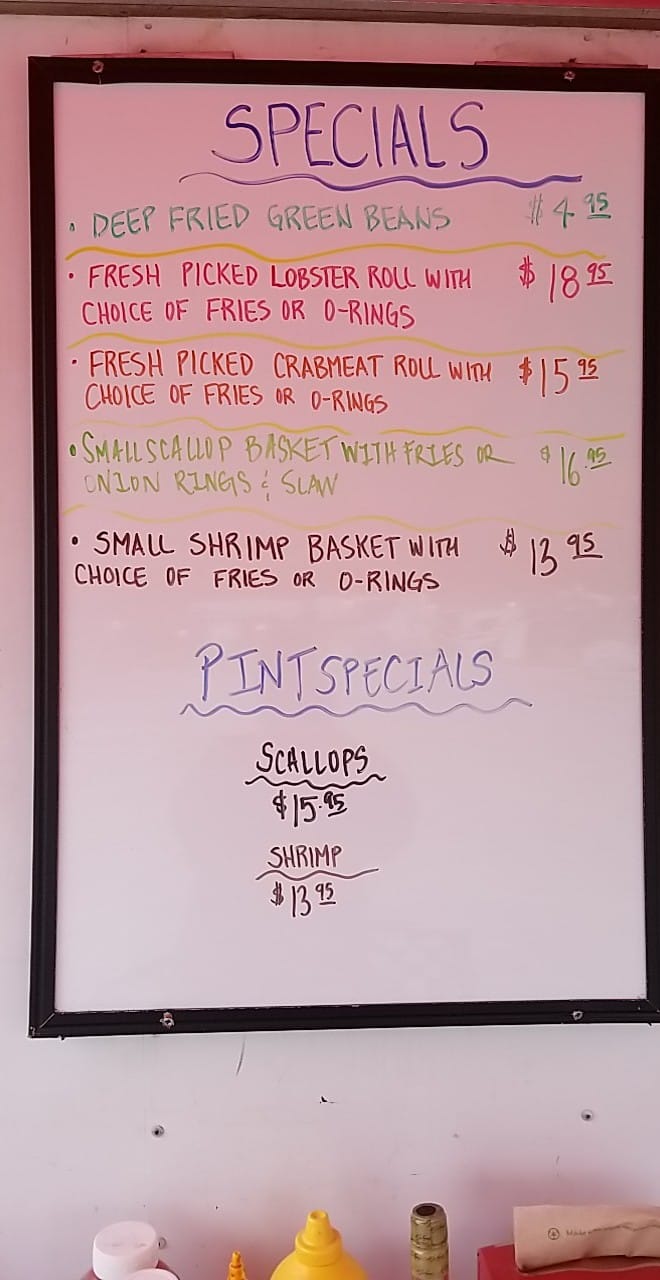 SPECIALS
• DEEP FRIED GREEN BEANS $4 95
• FRESH PICKED LOBSTER ROLL WITH $18 95
CHOICE OF FRIES OR O-RINGS
• FRESH PICKED CRABMEAT ROLL WITH $15 95
CHOICE OF FRIES OR O-RINGS
• SMALL SCALLOP BASKET WITH FRIES OR $16.95
ONION RINGS & SLAW
• SMALL SHRIMP BASKET WITH $13 95
CHOICE OF FRIES OR O-RINGS
PINT SPECIALS
SCALLOPS
$15.95
SHRIMP
$13 95